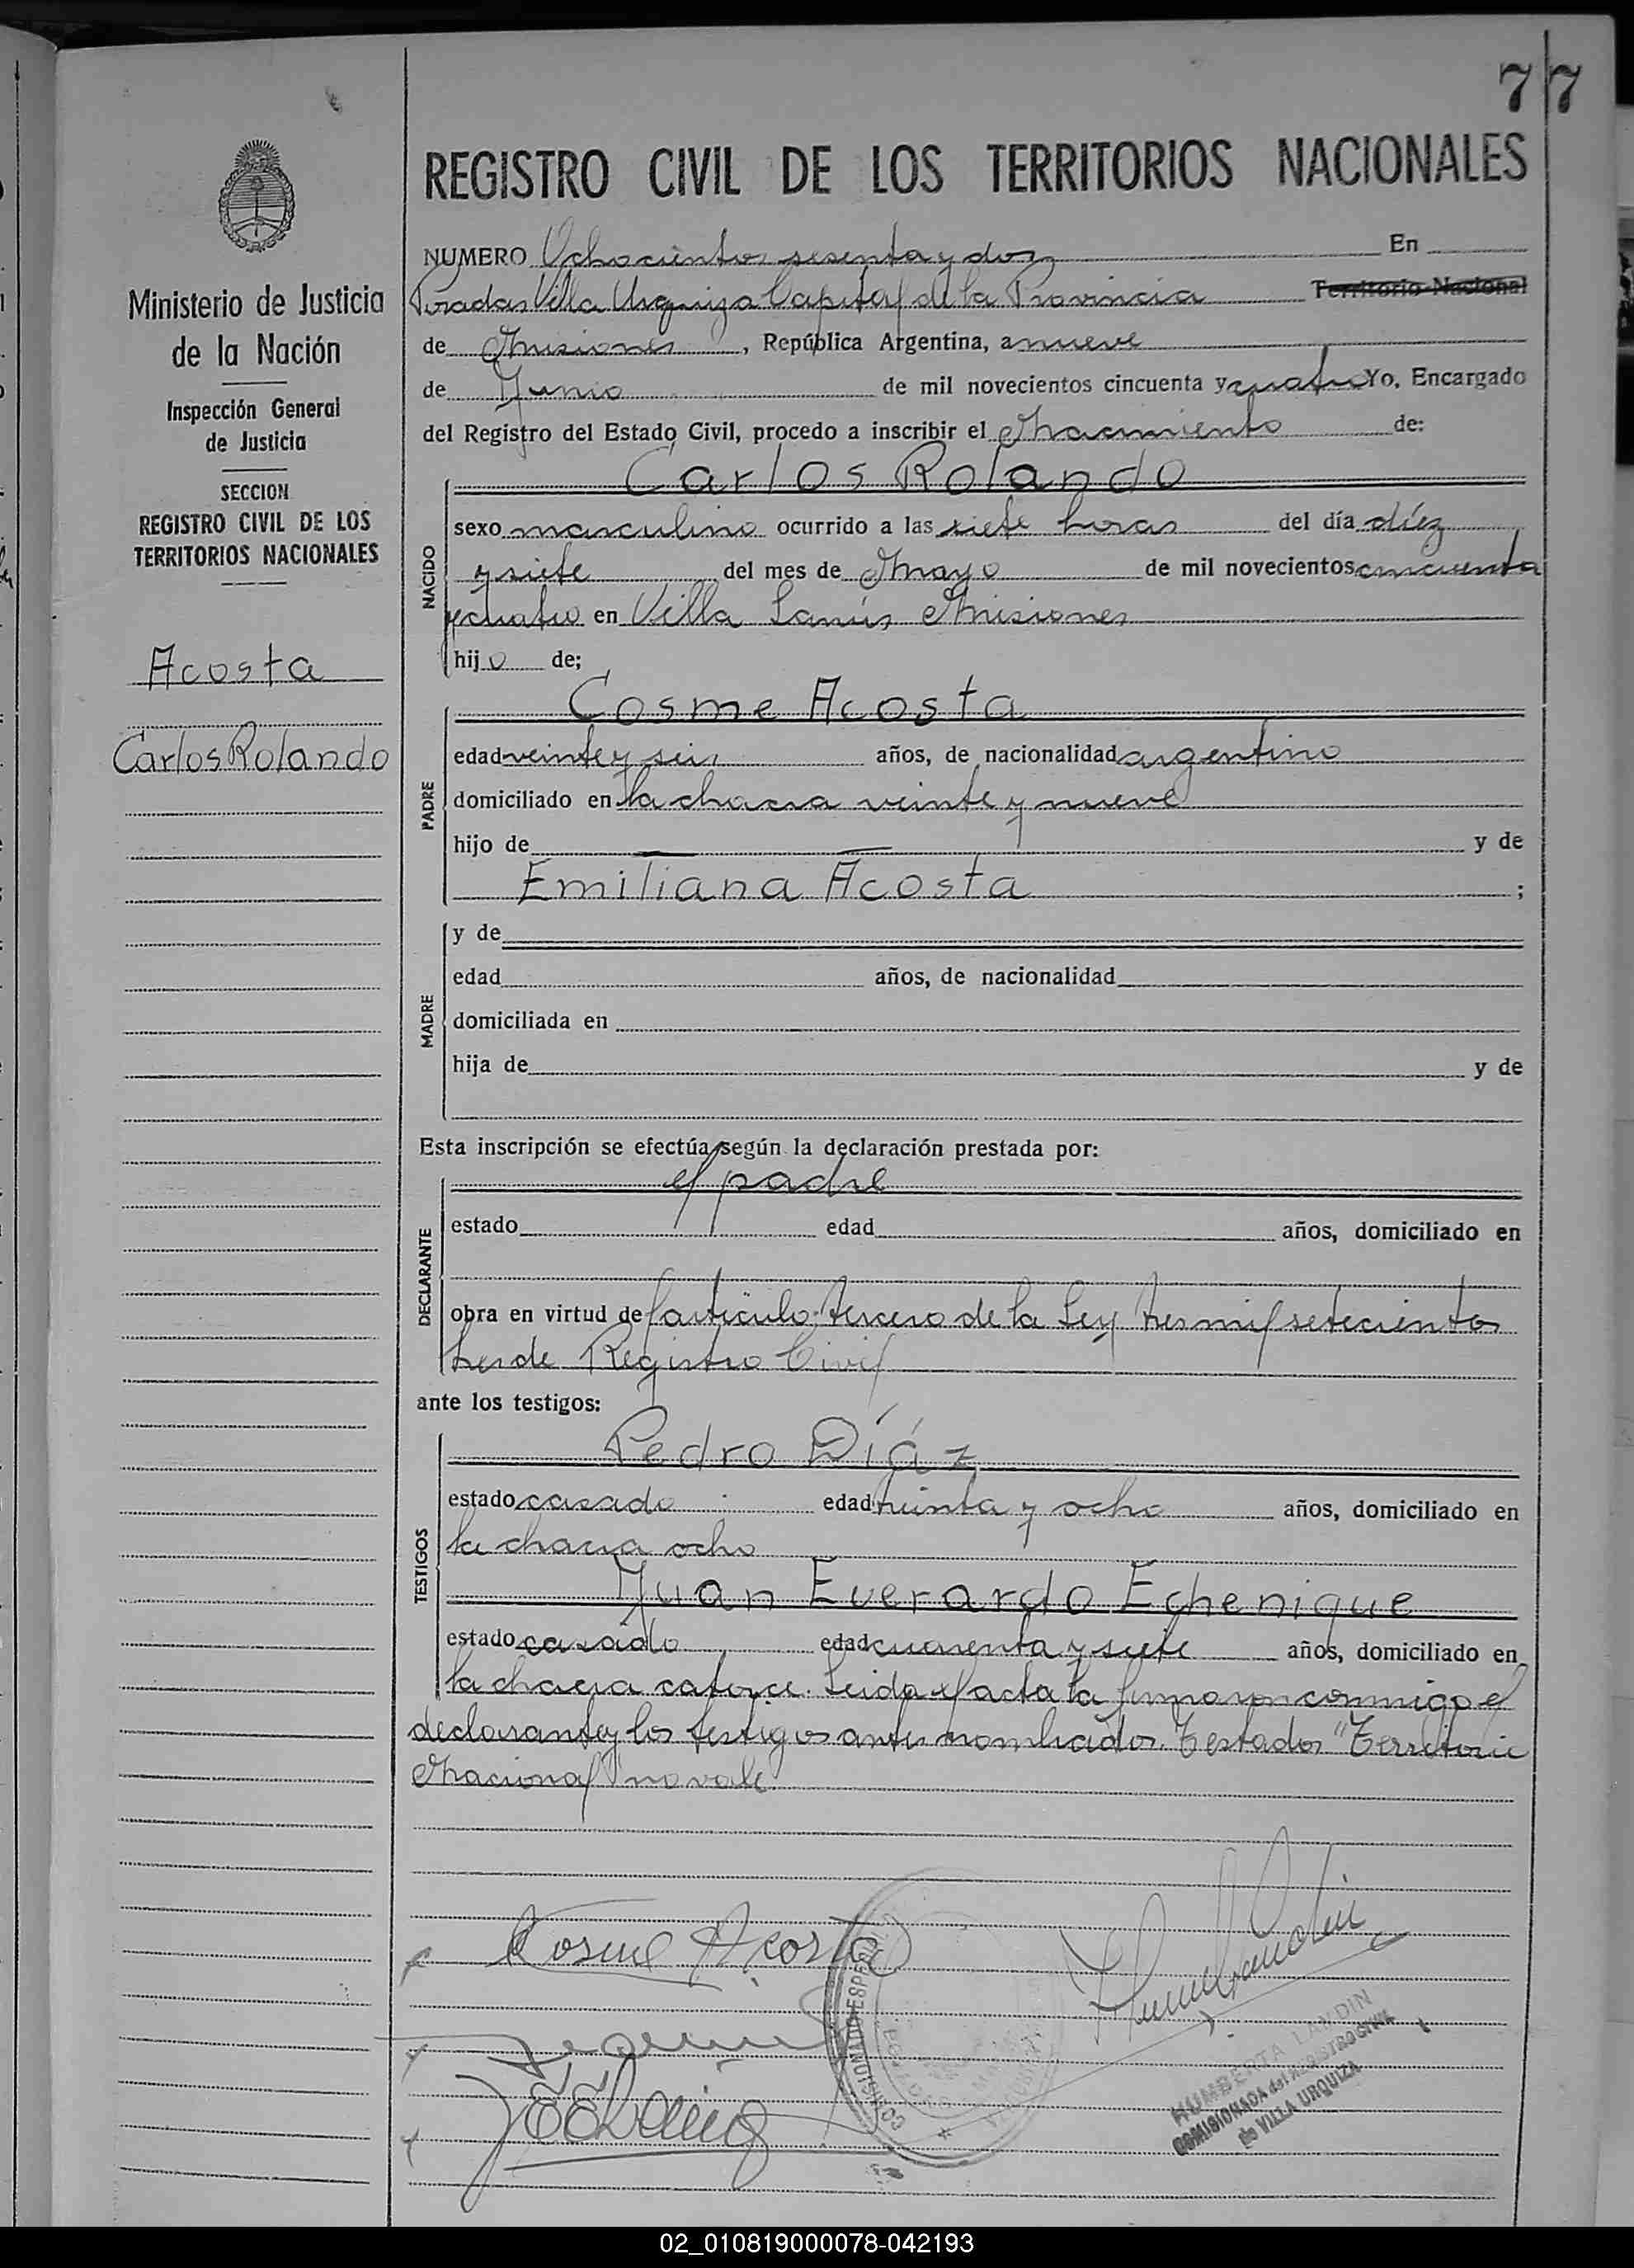 77
REGISTRO CIVIL DE LOS TERRITORIOS NACIONALES
Ministerio de Justicia
de la Nación
Inspección General
de Justicia
SECCION
REGISTRO CIVIL DE LOS
TERRITORIOS NACIONALES
Acosta
Carlos Rolando
NUMERO Ochocientos sesenta y dos En
Posadas Villa Urquiza Capital de la Provincia Territorio Nacional
de Misiones, República Argentina, a nueve
de Junio de mil novecientos cincuenta y cuatro Yo, Encargado
del Registro del Estado Civil, procedo a inscribir el Nacimiento de:
NACIDO
Carlos Rolando
sexo masculino ocurrido a las siete horas del día díez
y siete del mes de Mayo de mil novecientos cincuenta
y cuatro en Villa Lanús Misiones
hijo de;
PADRE
Cosme Acosta
edad veinte y seis años, de nacionalidad argentino
domiciliado en la chacra veinte y nueve
hijo de — — y de
Emiliana Acosta ;
MADRE
y de
edad años, de nacionalidad
domiciliada en
hija de y de
Esta inscripción se efectúa según la declaración prestada por:
DECLARANTE
el padre
estado edad años, domiciliado en
obra en virtud del artículo tercero de la Ley tres mil setecientos
tres de Registro Civil
ante los testigos:
TESTIGOS
Pedro Díaz
estado casado edad treinta y ocho años, domiciliado en
la chacra ocho
Juan Everardo Echenique
estado casado edad cuarenta y siete años, domiciliado en
la chacra catorce. Leida el acta la firmaron conmigo el
declarante y los testigos antes nombrados. Testados "Territorio
Nacional" no vale.
Cosme Acosta
HUMBERTA LANDIN
COMISIONADA del REGISTRO CIVIL
de VILLA URQUIZA
02_010819000078-042193